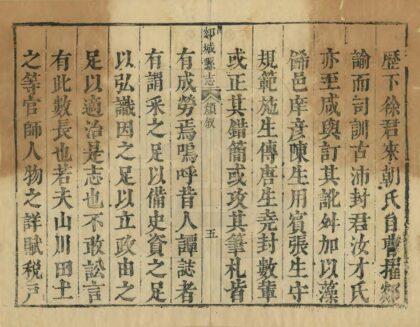 歷下徐君來朝氏自曹擢
諭而司訓古沛封君汝才氏
亦至咸與訂其訛舛加以藻
餙邑庠彥陳生用賓張生守
規範施生傳唐生堯封數輩
或正其錯簡或攻其筆札皆
城縣志 敘 五
有成勞焉嗚呼昔人譚誌者
有謂采之足以備史資之足
以弘識因之足以立政由之
足以適治是志也不敢訟言
有此數長也若夫山川田土
之等官師人物之詳賦稅戸